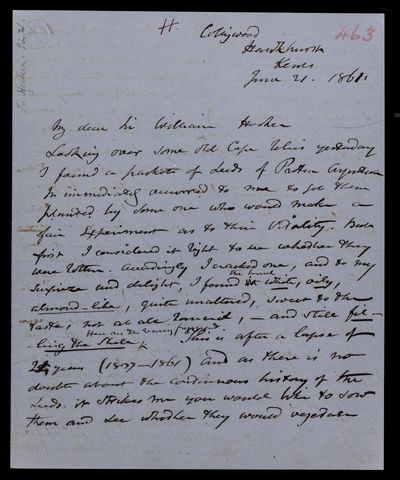 H.
463
Collingwood
Hawkhurst
Kent
June 21. 1861.
My dear Sir William Hooker
Looking over some old Cape relics yesterday
I found a packet of seeds of Protea Argentea
It immediately occurred to me to get them
planted by some one who would make a
fair experiment as to their vitality. But
first I considered it right to see whether they
were rotten. Accordingly I cracked one, and to my
surprise and delight, I found the kernel white, oily,
almond-like, quite unaltered, sweet to the
taste, not at all rancid, - and still fil-
-ling the shell
This is after a lapse of
24 years (1837-1861) and as there is no
doubt about the continuous history of the
seeds it strikes me you would like to sow
them and see whether they would vegetate